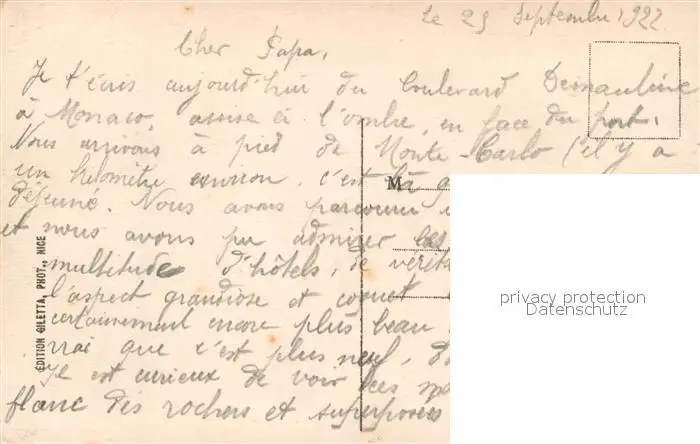 Le 25 Septembre 1922
Cher Papa,
Je t'écris aujourd'hui du boulevard
à Monaco, assise à l'ombre, en face du port,
Nous arrivons à pied de Monte-Carlo (il y a
un kilomètre environ. c'est là
déjeuné. Nous avons parcouru
et nous avons pu admirer les
multitude d'hôtels, de vérita
l'aspect grandiose et coquet
certainement encore plus beau
vrai que c'est plus neuf, d
Je est curieux de voir les m
flanc des rochers et superposées
M
EDITION GILETTA, PHOT., NICE
privacy protection
Datenschutz